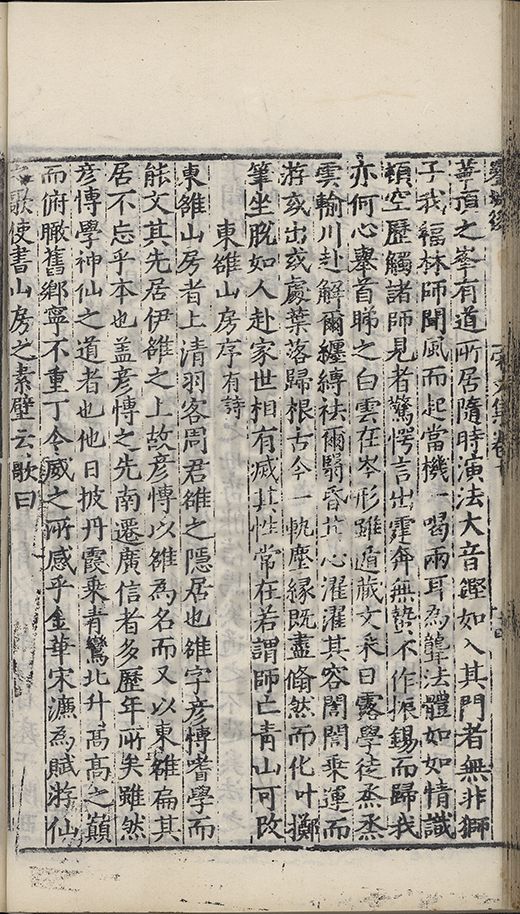 宋文集卷十
華頂之峯有道所居隨時演法大音鏗如入其門者無非獅
子我福林師聞風而起當機一喝兩耳為聾法體如如情識
頓空歷觸諸師見者驚愕言出霆奔無蟄不作振錫而歸我
亦何心舉首睇之白雲在岑形雖遁藏文采日露學徒烝烝
雲輸川赴解爾纏縛祛爾翳昏其心濯濯其容誾誾乘運而
游或出或處葉落歸根古今一軌塵緣既盡翛然而化叶擲
筆坐脫如人赴家世相有滅其性常在若謂師亡青山可改
東雒山房序有詩
東雒山房者上清羽客周君雒之隱居也雒字彥愽嗜學而
能文其先居伊雒之上故彥愽以雒為名而又以東雒扁其
居不忘乎本也盖彥愽之先南遷廣信者多歷年所矣雖然
彥愽學神仙之道者也他日披丹霞乘青鸞北升嵩高之巔
而俯瞰舊鄉寧不重丁令威之所感乎金華宋濂為賦游仙
之歌使書山房之素壁云歌曰